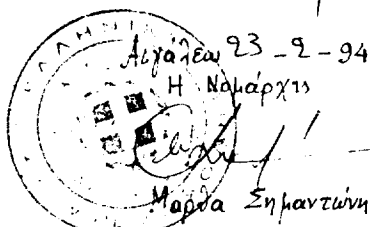 ΕΛΛΗΝΙ
Αιγάλεω 23-2-94
Η Νομάρχης
Μάρθα Σημαντώνη